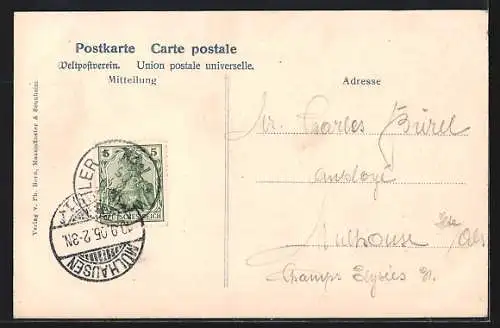 Postkarte Carte postale
Weltpostverein. Union postale universelle.
Mitteilung
Adresse
Verlag v. Ph. Born, Masmünster & Sennheim
5 5
DEUTSCHES REICH
TLER
.9.05.2-3N
MÜLHAUSEN
Mr. Charles Bürel
employé
Mulhouse Hte Als
Champs Elysées